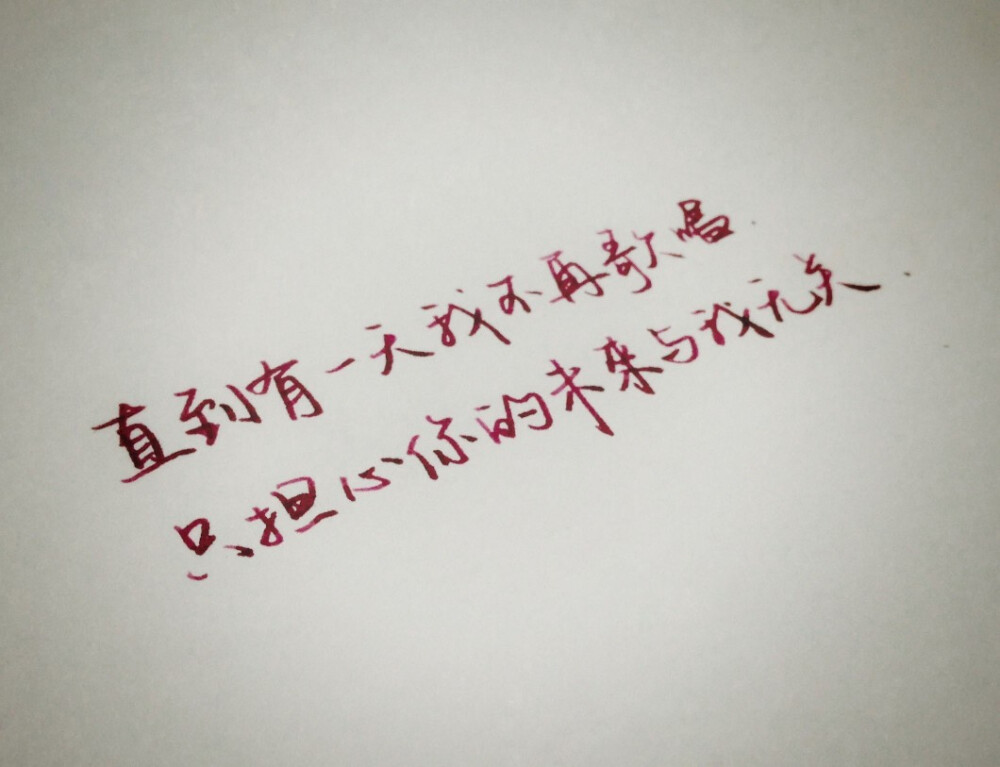 直到有一天我不再歌唱
只担心你的未来与我无关